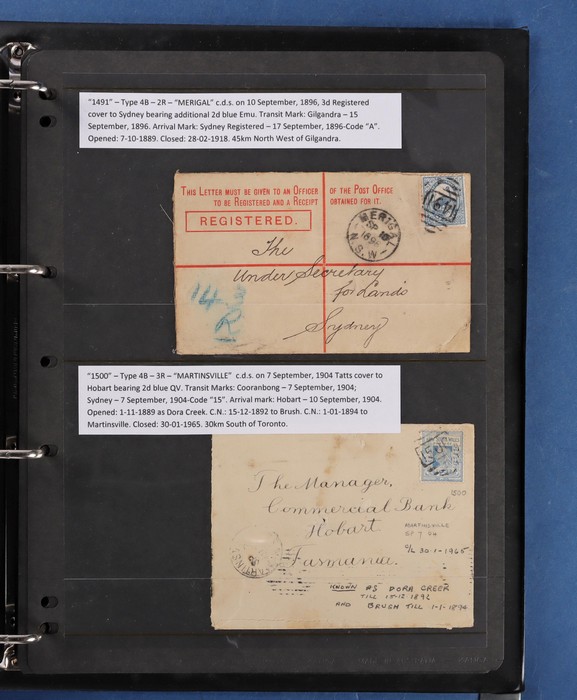 "1491" – Type 4B – 2R – "MERIGAL" c.d.s. on 10 September, 1896, 3d Registered
cover to Sydney bearing additional 2d blue Emu. Transit Mark: Gilgandra – 15
September, 1896. Arrival Mark: Sydney Registered – 17 September, 1896-Code "A".
Opened: 7-10-1889. Closed: 28-02-1918. 45km North West of Gilgandra.
THIS LETTER MUST BE GIVEN TO AN OFFICER OF THE POST OFFICE
TO BE REGISTERED AND A RECEIPT OBTAINED FOR IT.
REGISTERED.
MERIGAL
SP 10
N.S.W
The
Under Secretary
for Lands
Sydney
R
"1500" – Type 4B – 3R – "MARTINSVILLE" c.d.s. on 7 September, 1904 Tatts cover to
Hobart bearing 2d blue QV. Transit Marks: Cooranbong – 7 September, 1904;
Sydney – 7 September, 1904-Code "15". Arrival mark: Hobart – 10 September, 1904.
Opened: 1-11-1889 as Dora Creek. C.N.: 15-12-1892 to Brush. C.N.: 1-01-1894 to
Martinsville. Closed: 30-01-1965. 30km South of Toronto.
The Manager,
Commercial Bank
Hobart
Tasmania.
1500
MARTINSVILLE
SP 7 04
C/L 30-1-1965
KNOWN AS DORA CREEK
TILL 15-12-1892
AND BRUSH TILL 1-1-1894